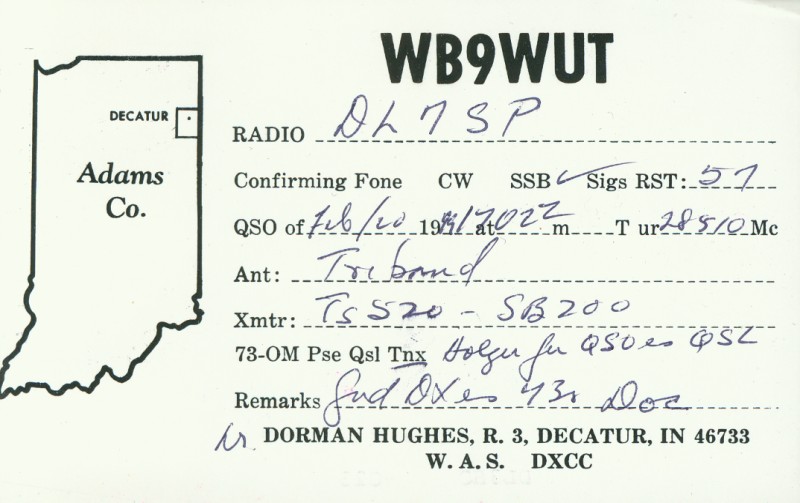 WB9WUT
DECATUR
Adams
Co.
RADIO DL7SP
Confirming Fone CW SSB ✓ Sigs RST: 57
QSO of Feb/20 19 at m T ur Mc
Ant: Triband
Xmtr: TS520 - SB200
73-OM Pse Qsl Tnx Holger fer QSO es QSL
Remarks gud DX es 73s Doc
Dr. DORMAN HUGHES, R. 3, DECATUR, IN 46733
W. A. S. DXCC